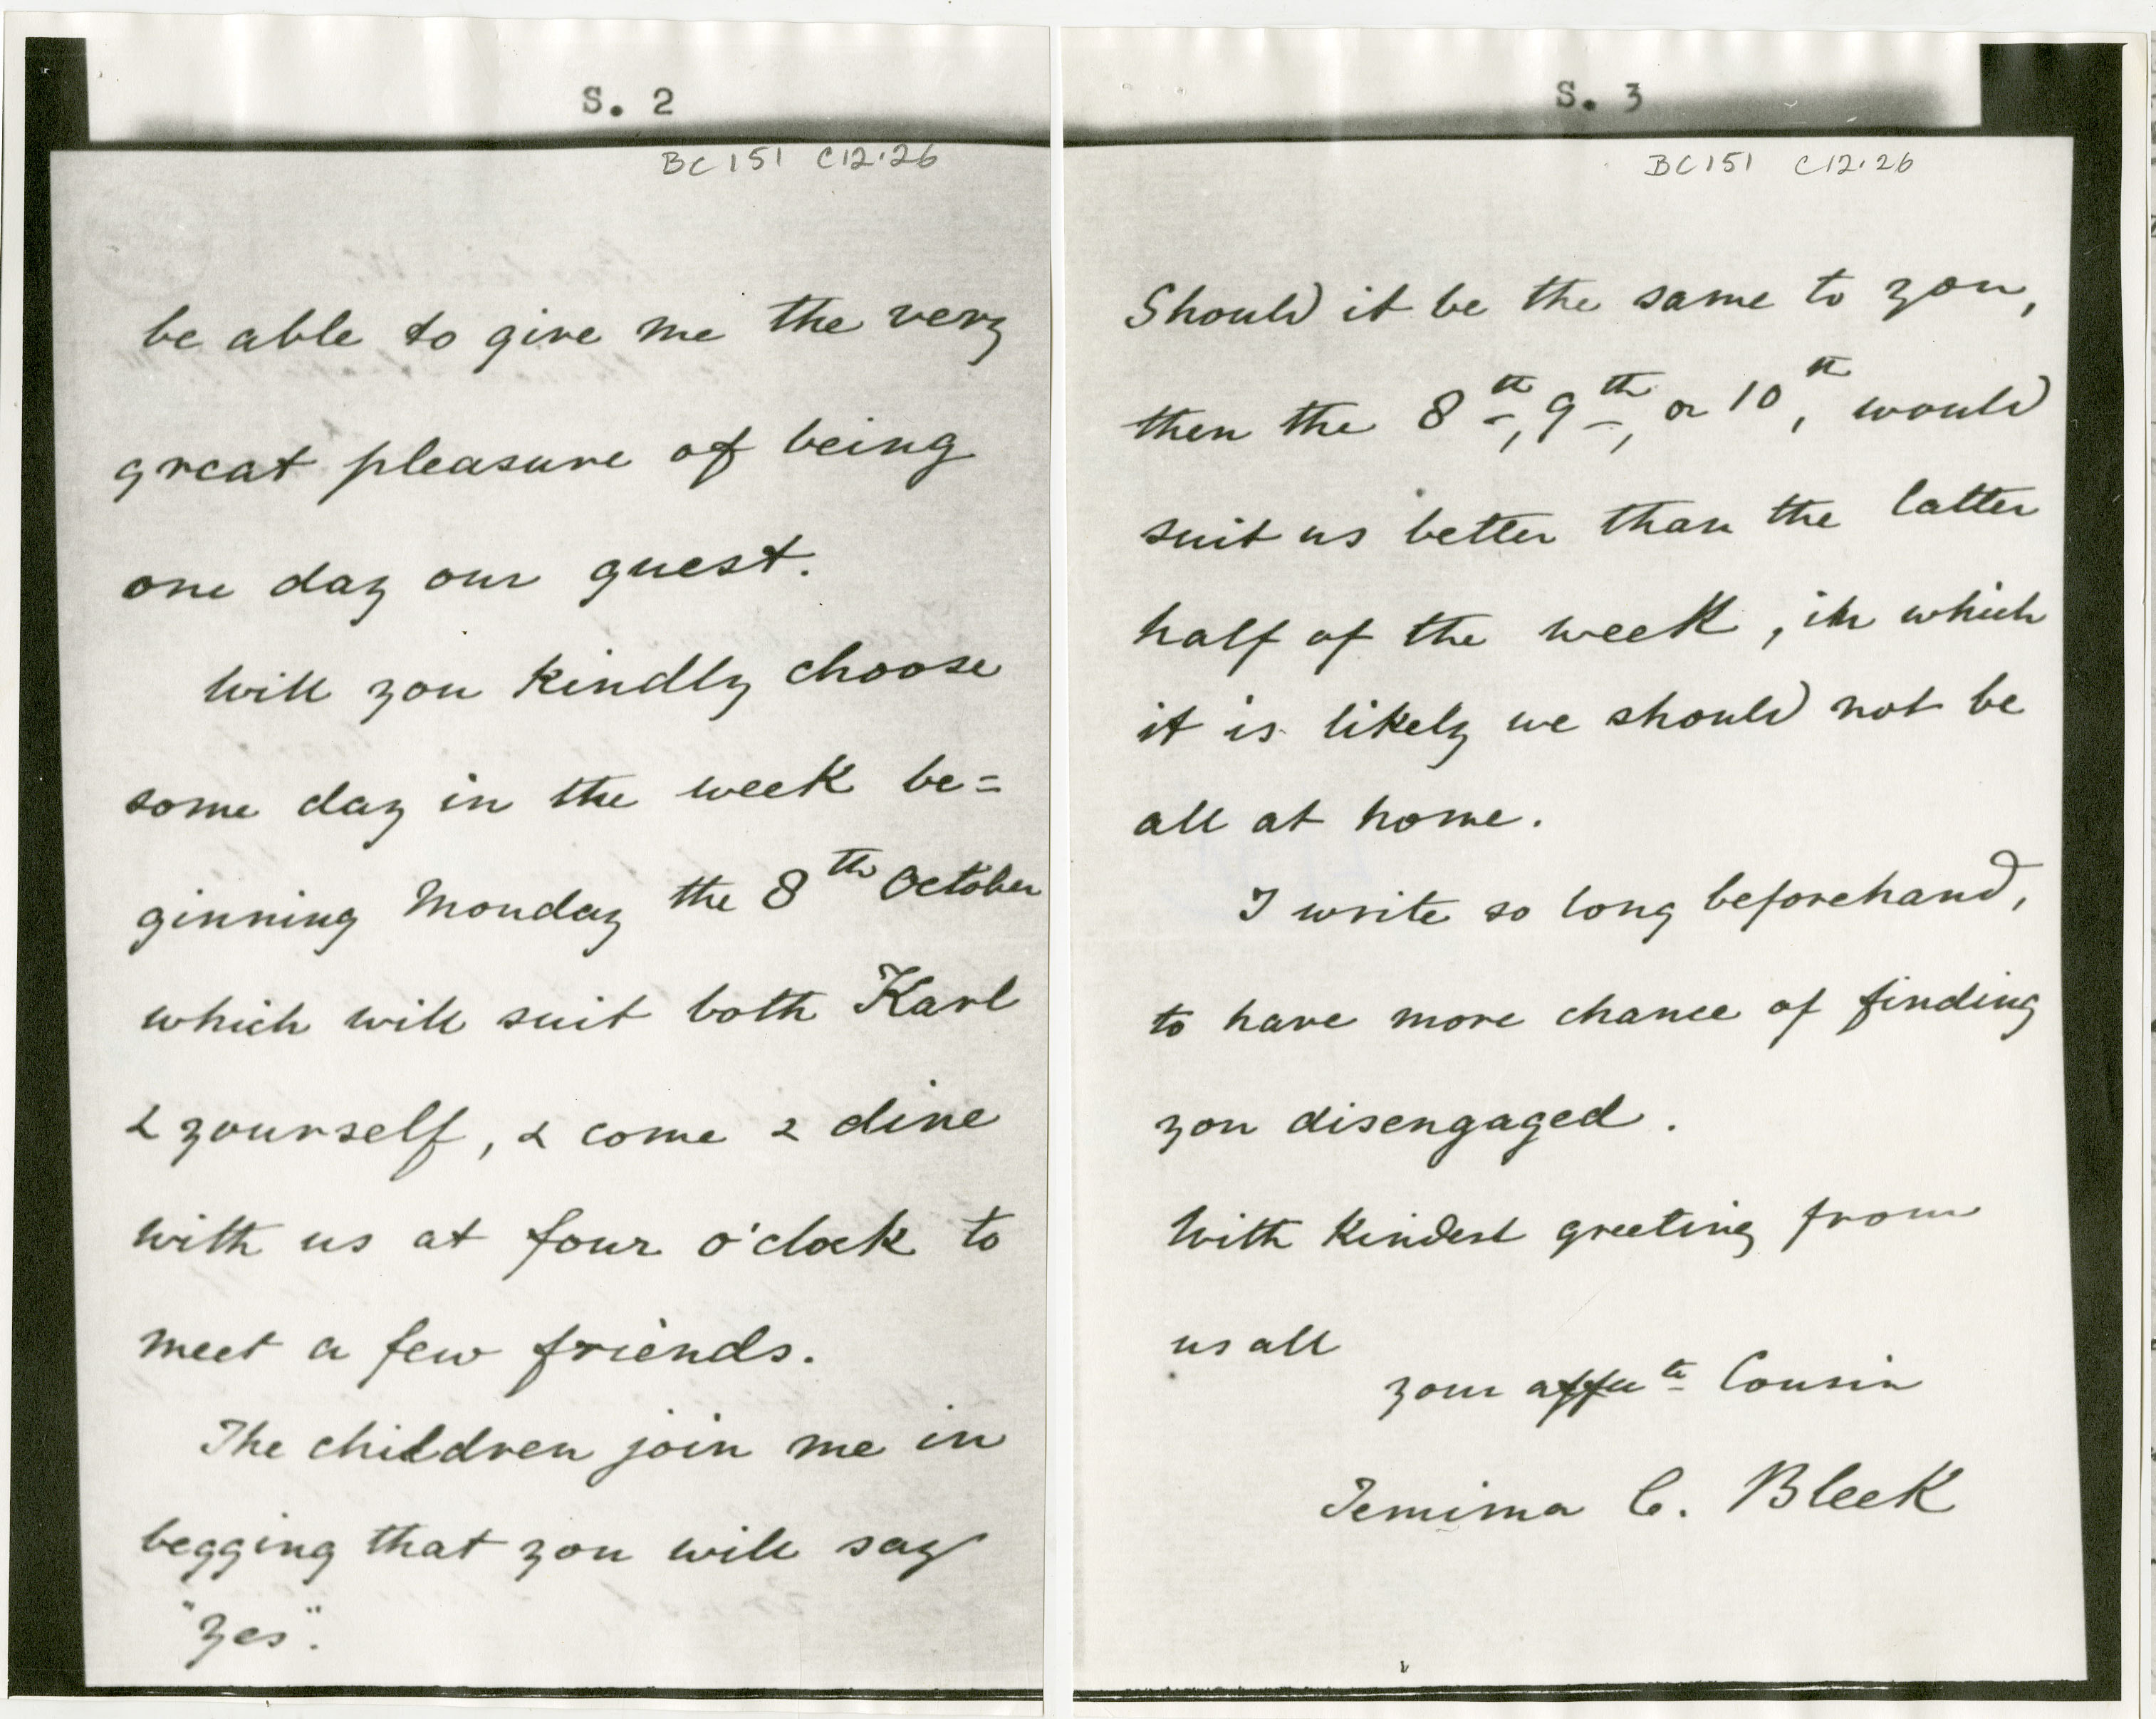 S. 2
BC 151 C12.26
be able to give me the very
great pleasure of being
one day our guest.
Will you kindly choose
some day in the week be=
ginning Monday the 8th October
which will suit both Karl
& yourself, & come & dine
with us at four o'clock to
meet a few friends.
The children join me in
begging that you will say
"yes".
S. 3
BC 151 C12.26
Should it be the same to you,
then the 8th, 9th, or 10th, would
suit us better than the latter
half of the week, in which
it is likely we should not be
all at home.
I write so long beforehand,
to have more chance of finding
you disengaged.
With kindest greeting from
us all
your affecte Cousin
Jemima C. Bleek